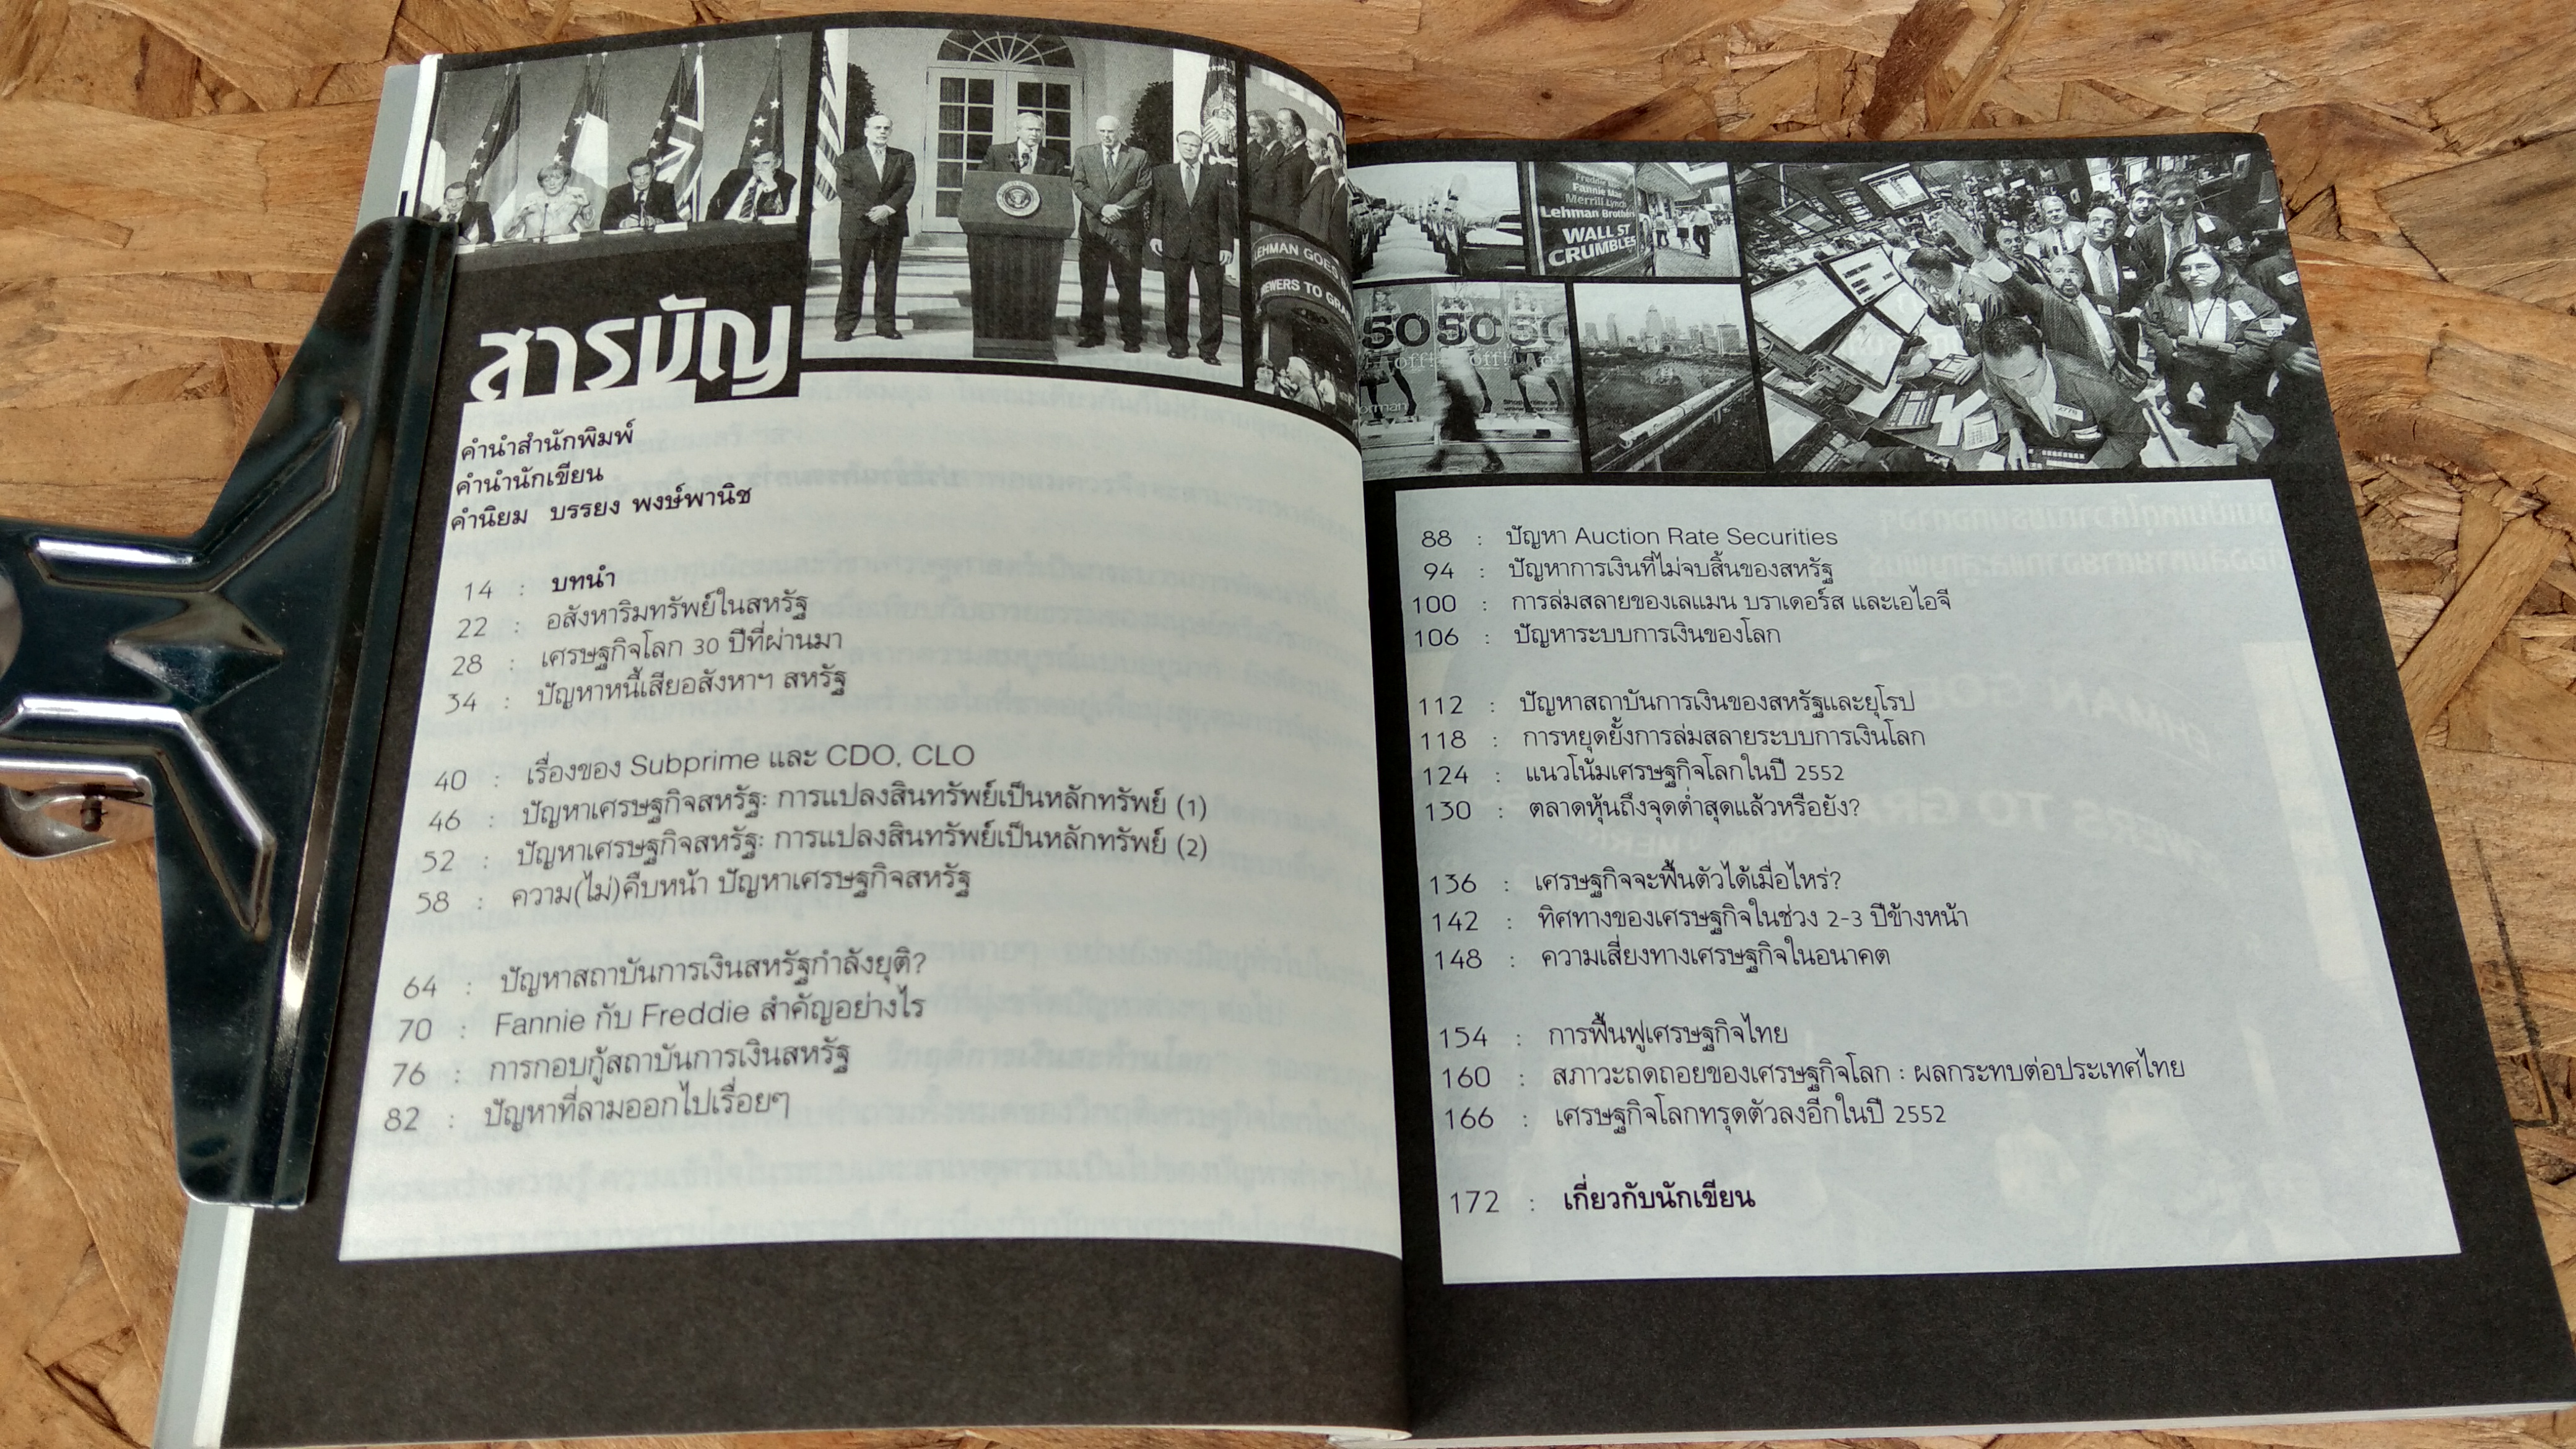 สารบัญ
คำนำสำนักพิมพ์
คำนำนักเขียน
คำนิยม บรรยง พงษ์พานิช
14 : บทนำ
22 : อสังหาริมทรัพย์ในสหรัฐ
28 : เศรษฐกิจโลก 30 ปีที่ผ่านมา
34 : ปัญหาหนี้เสียอสังหาฯ สหรัฐ
40 : เรื่องของ Subprime และ CDO, CLO
46 : ปัญหาเศรษฐกิจสหรัฐ: การแปลงสินทรัพย์เป็นหลักทรัพย์ (1)
52 : ปัญหาเศรษฐกิจสหรัฐ: การแปลงสินทรัพย์เป็นหลักทรัพย์ (2)
58 : ความ(ไม่)คืบหน้า ปัญหาเศรษฐกิจสหรัฐ
64 : ปัญหาสถาบันการเงินสหรัฐกำลังยุติ?
70 : Fannie กับ Freddie สำคัญอย่างไร
76 : การกอบกู้สถาบันการเงินสหรัฐ
82 : ปัญหาที่ลามออกไปเรื่อยๆ
LEHMAN GOES
EWERS TO GRA
Freddie
Fannie Mae
Merrill Lynch
Lehman Brothers
WALL ST
CRUMBLES
50 50 30
off! off!
88 : ปัญหา Auction Rate Securities
94 : ปัญหาการเงินที่ไม่จบสิ้นของสหรัฐ
100 : การล่มสลายของเลแมน บราเดอร์ส และเอไอจี
106 : ปัญหาระบบการเงินของโลก
112 : ปัญหาสถาบันการเงินของสหรัฐและยุโรป
118 : การหยุดยั้งการล่มสลายระบบการเงินโลก
124 : แนวโน้มเศรษฐกิจโลกในปี 2552
130 : ตลาดหุ้นถึงจุดต่ำสุดแล้วหรือยัง?
136 : เศรษฐกิจจะฟื้นตัวได้เมื่อไหร่?
142 : ทิศทางของเศรษฐกิจในช่วง 2-3 ปีข้างหน้า
148 : ความเสี่ยงทางเศรษฐกิจในอนาคต
154 : การฟื้นฟูเศรษฐกิจไทย
160 : สภาวะถดถอยของเศรษฐกิจโลก : ผลกระทบต่อประเทศไทย
166 : เศรษฐกิจโลกทรุดตัวลงอีกในปี 2552
172 : เกี่ยวกับนักเขียน